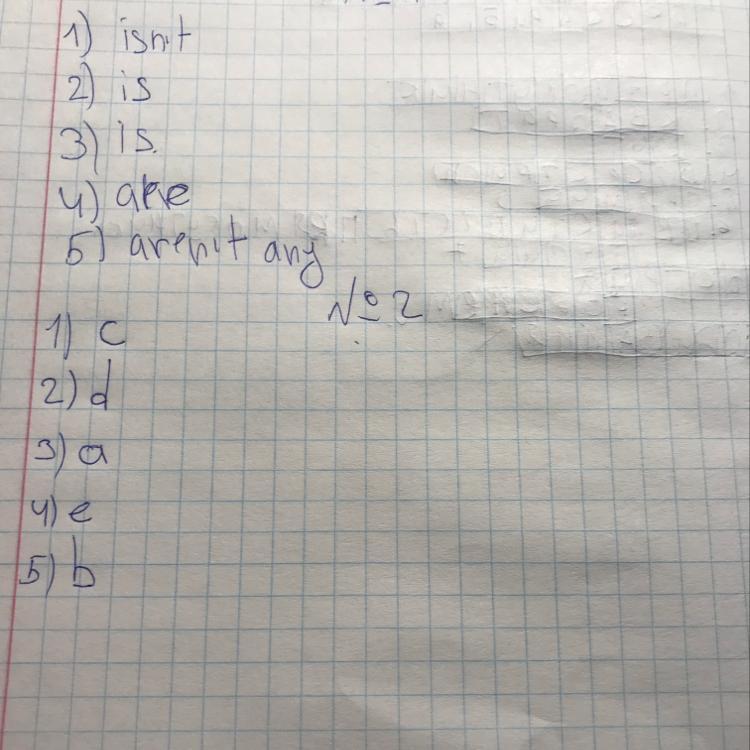 1) isn't
2) is
3) is.
4) are
5) aren't any
№ 2
1) c
2) d
3) a
4) e
5) b